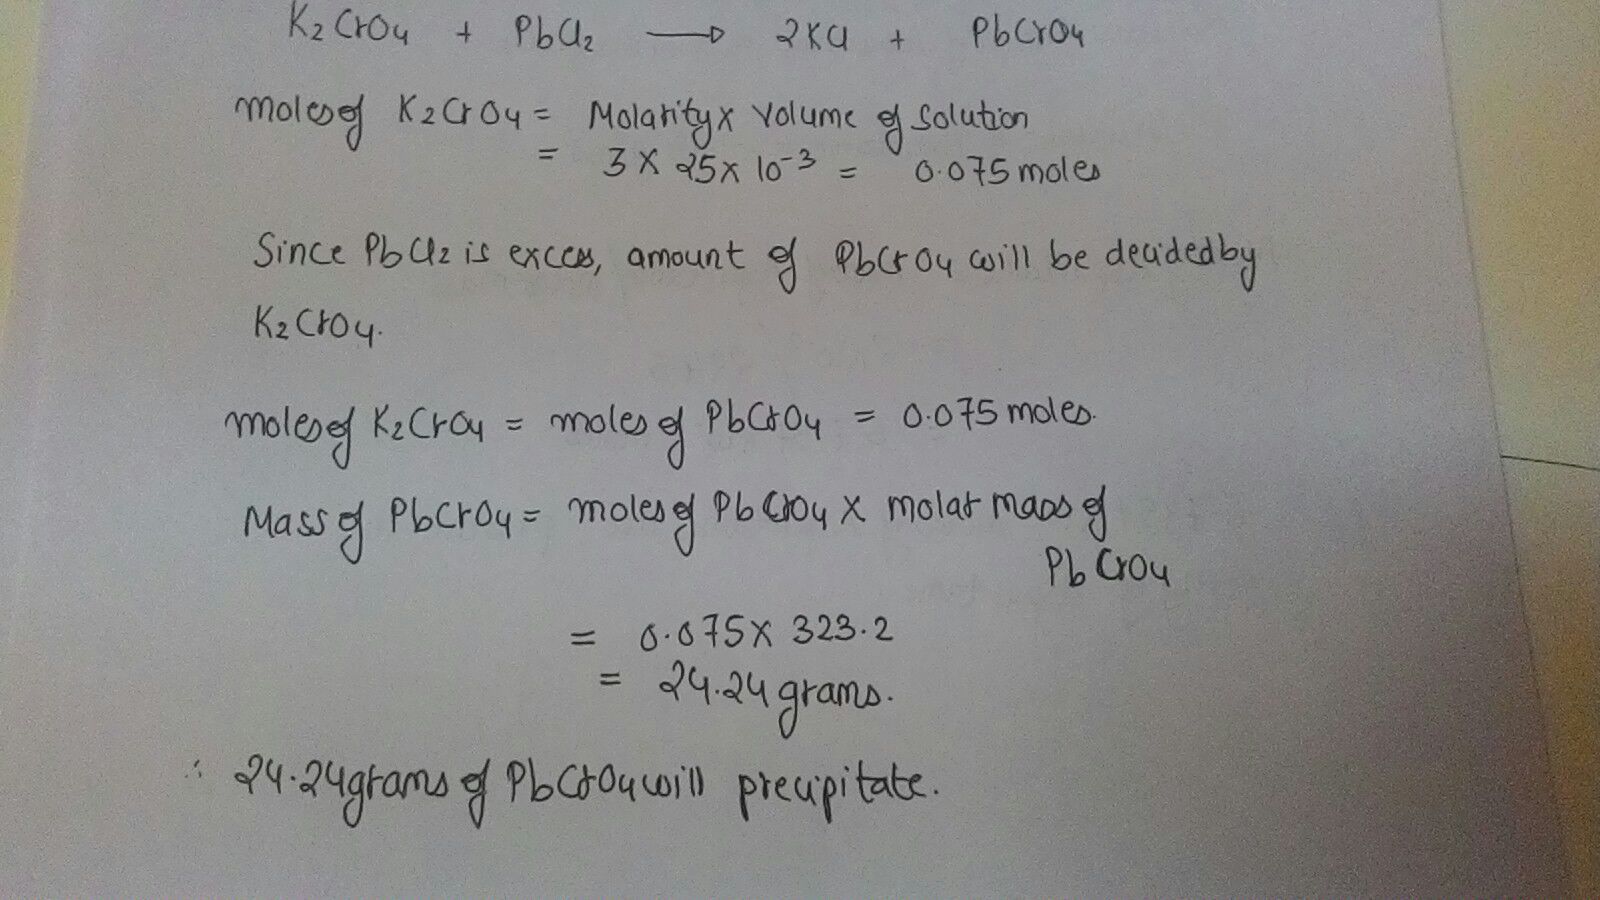 K2CrO4 + PbCl2 → 2KCl + PbCrO4
moles of K2CrO4 = Molarity x volume of solution
= 3 x 25 x 10-3 = 0.075 moles
Since PbCl2 is excess, amount of PbCrO4 will be decided by
K2CrO4.
moles of K2CrO4 = moles of PbCrO4 = 0.075 moles.
Mass of PbCrO4 = moles of PbCrO4 x molar mass of
PbCrO4
= 0.075 x 323.2
= 24.24 grams.
∴ 24.24 grams of PbCrO4 will precipitate.